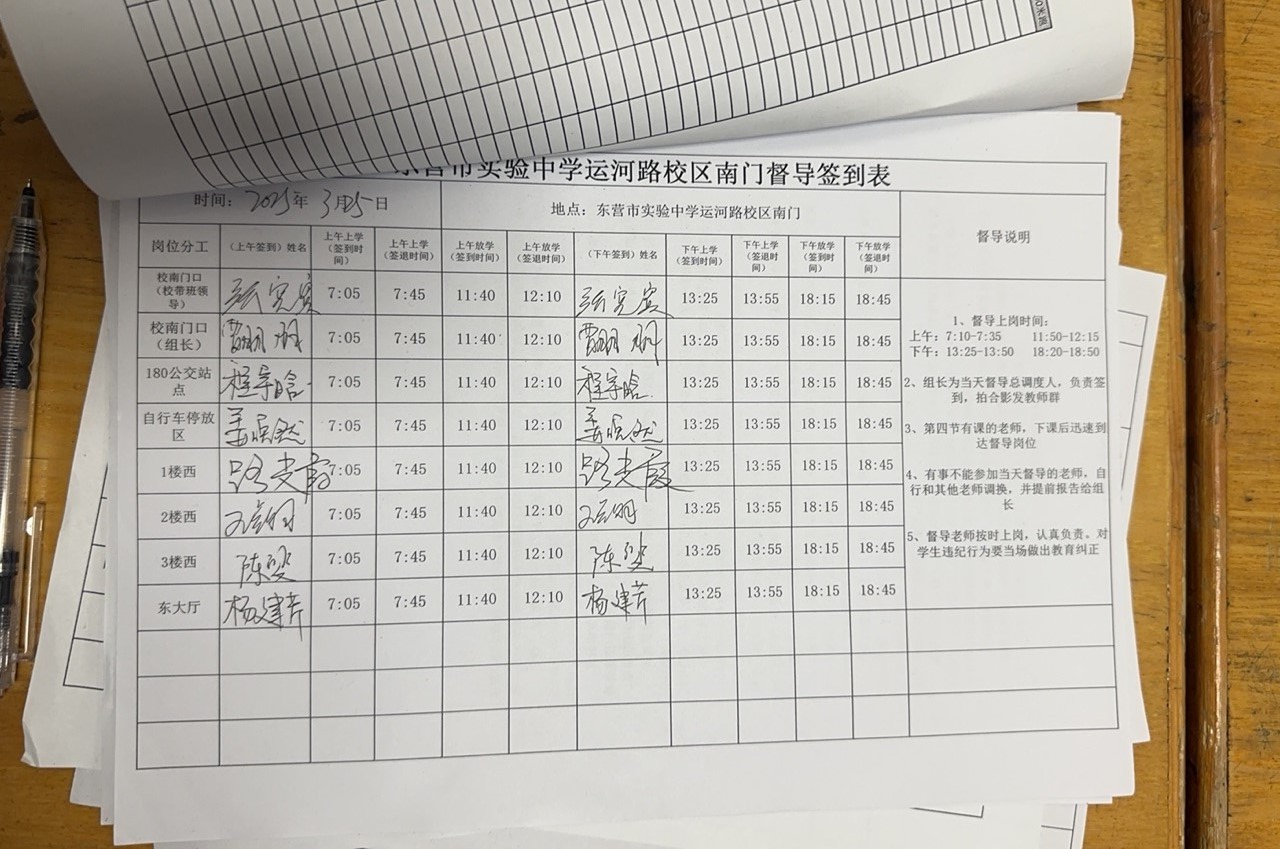 东营市实验中学运河路校区南门督导签到表
时间：2025年 3月25日 地点：东营市实验中学运河路校区南门 督导说明
岗位分工 （上午签到）姓名 上午上学（签到时间） 上午上学（签退时间） 上午放学（签到时间） 上午放学（签退时间） （下午签到）姓名 下午上学（签到时间） 下午上学（签退时间） 下午放学（签到时间） 下午放学（签退时间）
校南门口（校带班领导） 7:05 7:45 11:40 12:10 13:25 13:55 18:15 18:45
校南门口（组长） 7:05 7:45 11:40 12:10 13:25 13:55 18:15 18:45
180公交站点 程学晗 7:05 7:45 11:40 12:10 程学晗 13:25 13:55 18:15 18:45
自行车停放区 7:05 7:45 11:40 12:10 13:25 13:55 18:15 18:45
1楼西 路夫霞 7:05 7:45 11:40 12:10 路夫霞 13:25 13:55 18:15 18:45
2楼西 7:05 7:45 11:40 12:10 13:25 13:55 18:15 18:45
3楼西 7:05 7:45 11:40 12:10 13:25 13:55 18:15 18:45
东大厅 杨建芹 7:05 7:45 11:40 12:10 杨建芹 13:25 13:55 18:15 18:45
1、督导上岗时间：
上午：7:10-7:35 11:50-12:15
下午：13:25-13:50 18:20-18:50
2、组长为当天督导总调度人，负责签
到，拍合影发教师群
3、第四节有课的老师，下课后迅速到
达督导岗位
4、有事不能参加当天督导的老师，自
行和其他老师调换，并提前报告给组
长
5、督导老师按时上岗，认真负责。对
学生违纪行为要当场做出教育纠正